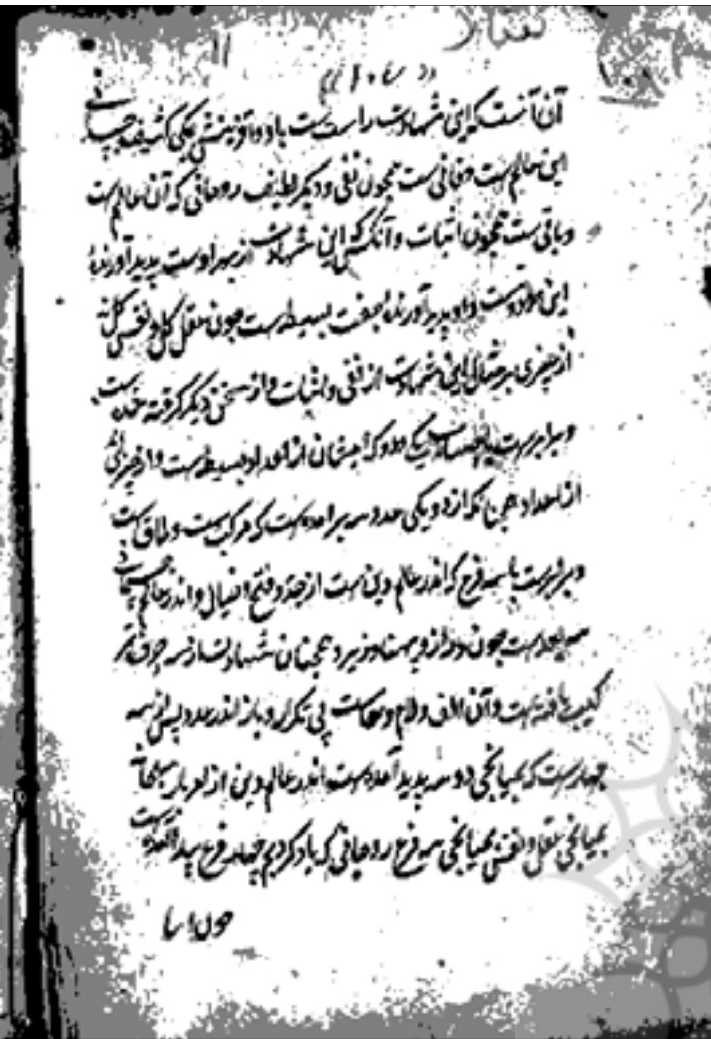 آن آنست که این شهادت راست است باد و آفرینش یکی کثیف جسمانی
این عالم است و فانی ست همچون نفی و دیگر لطیف روحانی که آن عالم است
و باقی ست همچون اثبات و آنکش این شهادت از بهر اوست پدید آورنده
این هر دوست و او پدید آورنده جفت بسیط است چون عقل کل و نفس کل نه
از چیزی بر مثال این شهادت از نفی و اثبات و از سخنی دیگر گرفته شده است
و برابر است یکی و دو که ایشان از اعداد بسیط است و از چیزی نه
از اعداد همچنانکه از دو یکی عدد سه بر آمده است که مرکب است و طاق است
و برابرست با سه فرع که اندر عالم دین است از جد و فتح و خیال و اندر عالم جسمانی
سه بعد است چون دراز و پهنا و زیر و همچنان شهادت از سه حرف
ترکیب یافته است و آن الف و لام و هاست بی تکرار و باز اندر عدد پس از سه
چهار است که بمیانجی دو سه پدید آمده است اندر عالم دین از امر باری سبحانه
بمیانجی عقل و نفس بمیانجی سه فرع روحانی که یاد کردیم چهار فرع پیدا آمده است
چون اسا